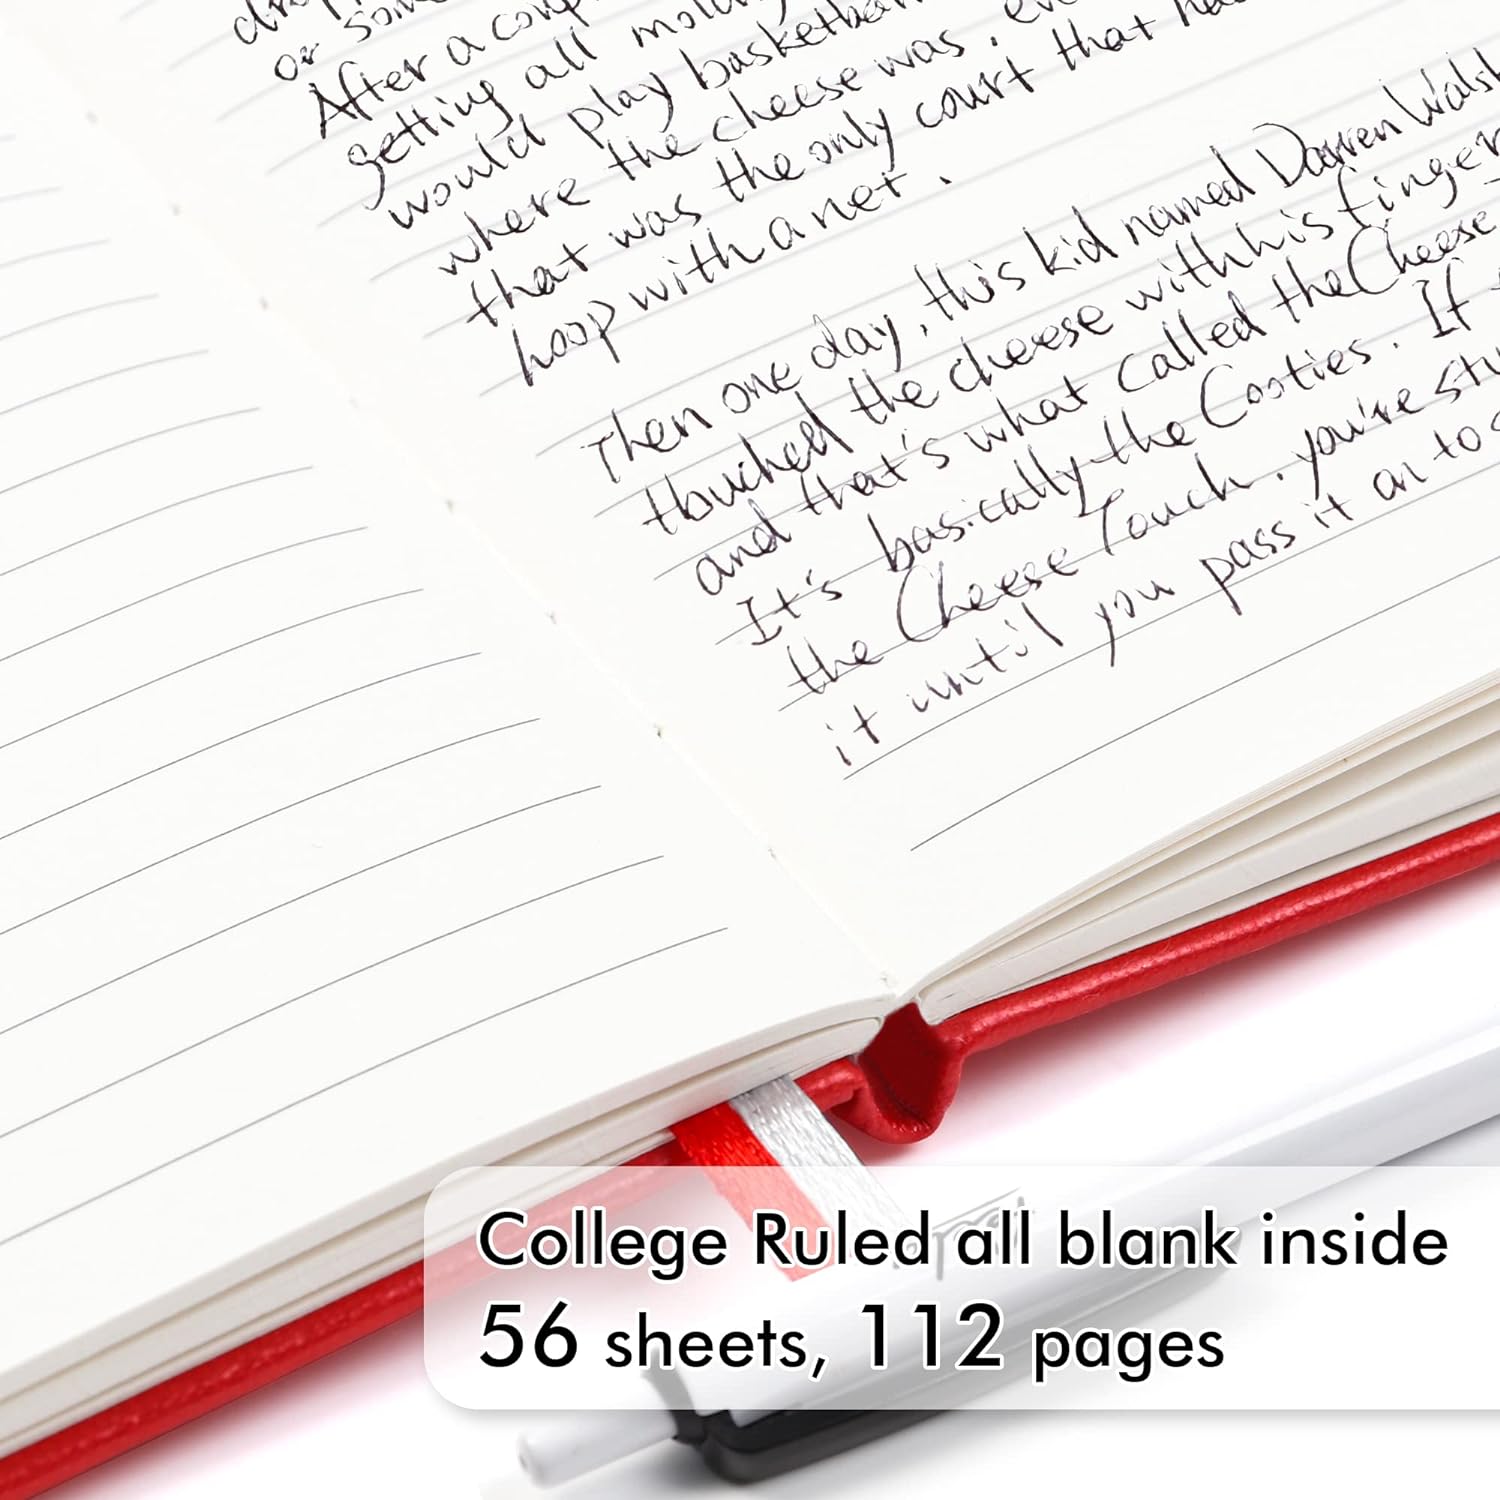 or some
After a coup
getting all mold
would play basketball
where the cheese was. ev
that was the only court that ha
hoop with a net.
Then one day, this kid named Darren Walsh
touched the cheese with his finger
and that's what called the Cheese
It's basically the Cooties. If
the Cheese Touch. you're stu
it until you pass it on to s
College Ruled all blank inside
56 sheets, 112 pages